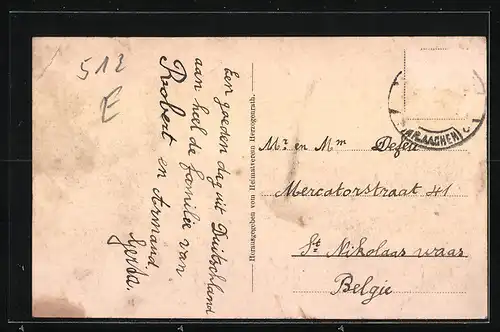 512
E
Een goeden dag uit Duitschland
aan heel de familie van
Robert en Armand
Gerda.
Herausgegeben vom Heimatverein Herzogenrath.
Mr en Mm Defer
Mercatorstraat 41
St Nikolaas waas
Belgie
(KR.AACHEN)